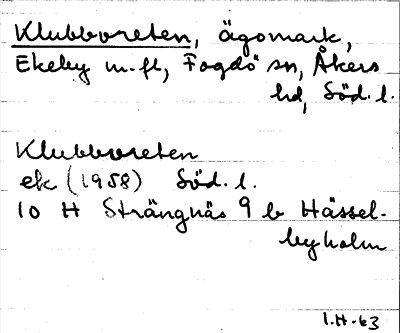 Klubbvreten, ägomark,
Ekeby m.fl, Fogdö sn, Åkers
hd, Söd. l.
Klubbvreten
ek (1958) Söd. l.
10 H Strängnäs 9 b Hässel-
byholm
I.H-63